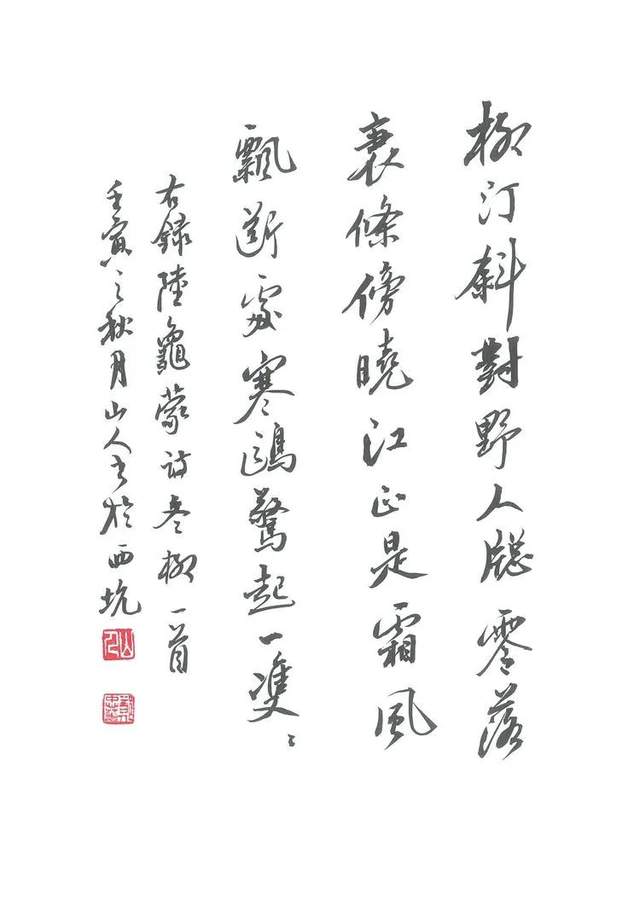 柳汀斜對野人牕零落
衰條傍曉江正是霜風
飄斷處寒鷗驚起一雙〻
右錄陸龜蒙詩冬柳一首
壬寅之秋月山人書於西坑
山人